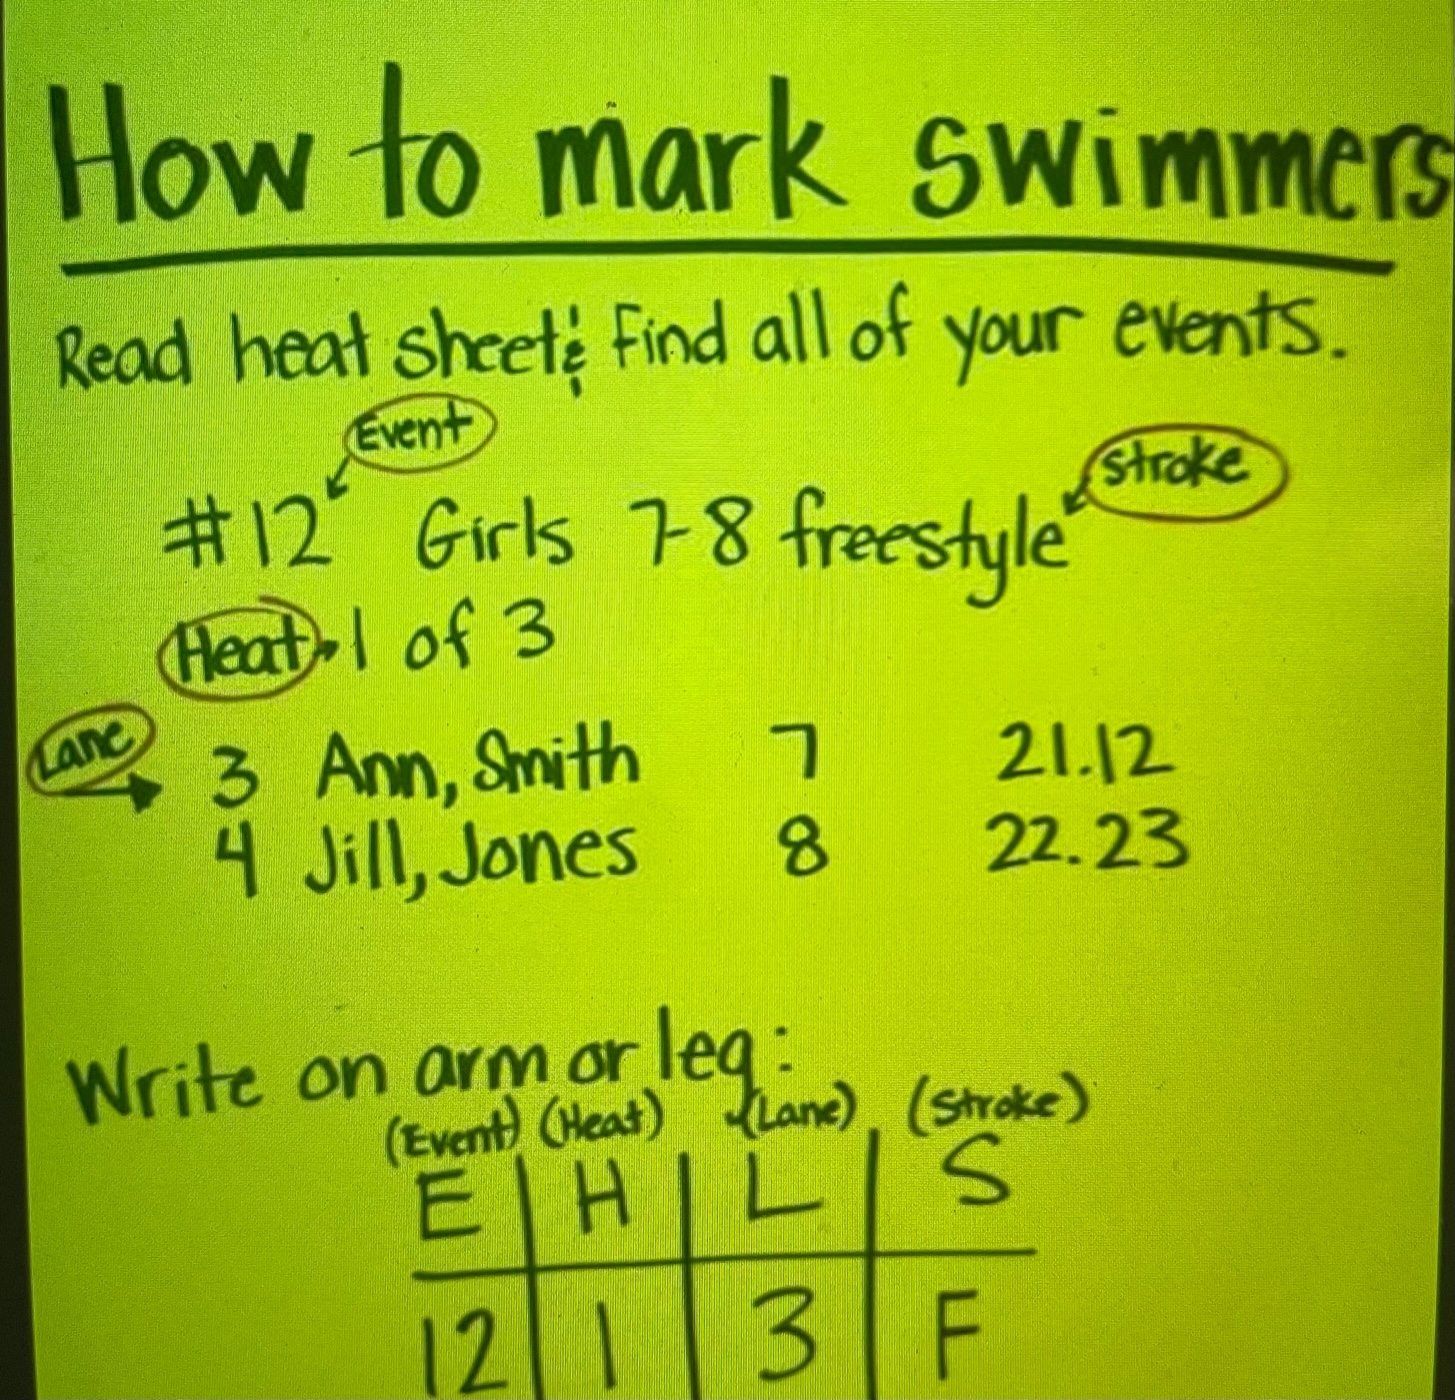 How to mark swimmers
Read heat sheet & Find all of your events.
Event
stroke
#12 Girls 7-8 freestyle
Heat 1 of 3
Lane
3 Ann, Smith 7 21.12
4 Jill, Jones 8 22.23
Write on arm or leg:
(Event) (Heat) (Lane) (Stroke)
E H L S
12 1 3 F